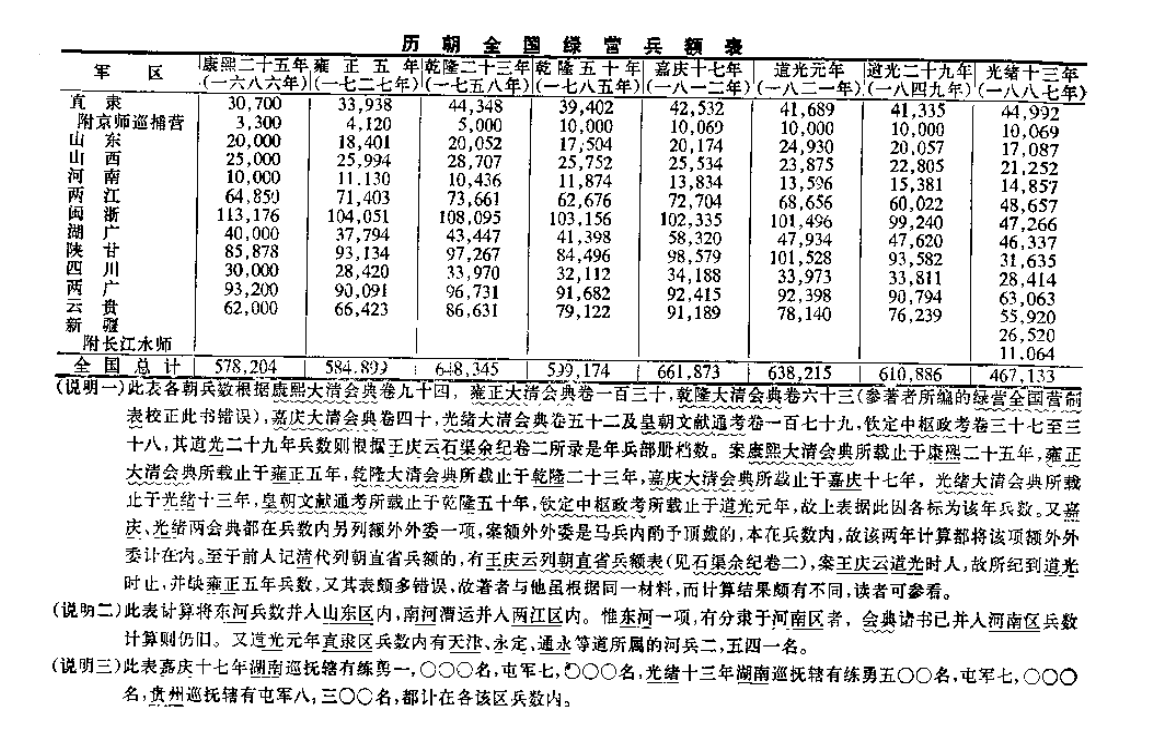 历朝全国绿营兵额表
军区 康熙二十五年 雍正五年 乾隆二十三年 乾隆五十年 嘉庆十七年 道光元年 道光二十九年 光绪十三年
(一六八六年) (一七二七年) (一七五八年) (一七八五年) (一八一二年) (一八二一年) (一八四九年) (一八八七年)
直隶 30,700 33,938 44,348 39,402 42,532 41,689 41,335 44,992
附京师巡捕营 3,300 4,120 5,000 10,000 10,069 10,000 10,000 10,069
山东 20,000 18,401 20,052 17,504 20,174 24,930 20,057 17,087
山西 25,000 25,994 28,707 25,752 25,534 23,875 22,805 21,252
河南 10,000 11.130 10,436 11,874 13,834 13,596 15,381 14,857
两江 64,850 71,403 73,661 62,676 72,704 68,656 60,022 48,657
闽浙 113,176 104,051 108,095 103,156 102,335 101,496 99,240 47,266
湖广 40,000 37,794 43,447 41,398 58,320 47,934 47,620 46,337
陕甘 85,878 93,134 97,267 84,496 98,579 101,528 93,582 31,635
四川 30,000 28,420 33,970 32,112 34,188 33,973 33,811 28,414
两广 93,200 90,091 96,731 91,682 92,415 92,398 90,794 63,063
云贵 62,000 66,423 86,631 79,122 91,189 78,140 76,239 55,920
新疆 26,520
附长江水师 11,064
全国总计 578,204 584.899 648,345 599,174 661,873 638,215 610,886 467,133
(说明一)此表各朝兵数根据康熙大清会典卷九十四，雍正大清会典卷一百三十，乾隆大清会典卷六十三(参著者所编的绿营全国营制
表校正此书错误)，嘉庆大清会典卷四十，光绪大清会典卷五十二及皇朝文献通考卷一百七十九，钦定中枢政考卷三十七至三
十八，其道光二十九年兵数则根据王庆云石渠余纪卷二所录是年兵部册档数。案康熙大清会典所载止于康熙二十五年，雍正
大清会典所载止于雍正五年，乾隆大清会典所载止于乾隆二十三年，嘉庆大清会典所载止于嘉庆十七年，光绪大清会典所载
止于光绪十三年，皇朝文献通考所载止于乾隆五十年，钦定中枢政考所载止于道光元年，故上表据此因各标为该年兵数。又嘉
庆、光绪两会典都在兵数内另列额外外委一项，案额外外委是马兵内酌予顶戴的，本在兵数内，故该两年计算都将该项额外外
委计在内。至于前人记清代列朝直省兵额的，有王庆云列朝直省兵额表(见石渠余纪卷二)，案王庆云道光时人，故所纪到道光
时止，并缺雍正五年兵数，又其表颇多错误，故著者与他虽根据同一材料，而计算结果颇有不同，读者可参看。
(说明二)此表计算将东河兵数并入山东区内，南河漕运并入两江区内。惟东河一项，有分隶于河南区者，会典诸书已并入河南区兵数
计算则仍旧。又道光元年直隶区兵数内有天津、永定，通永等道所属的河兵二，五四一名。
(说明三)此表嘉庆十七年湖南巡抚辖有练勇一，〇〇〇名，屯军七，〇〇〇名，光绪十三年湖南巡抚辖有练勇五〇〇名，屯军七，〇〇〇
名，贵州巡抚辖有屯军八，三〇〇名，都计在各该区兵数内。